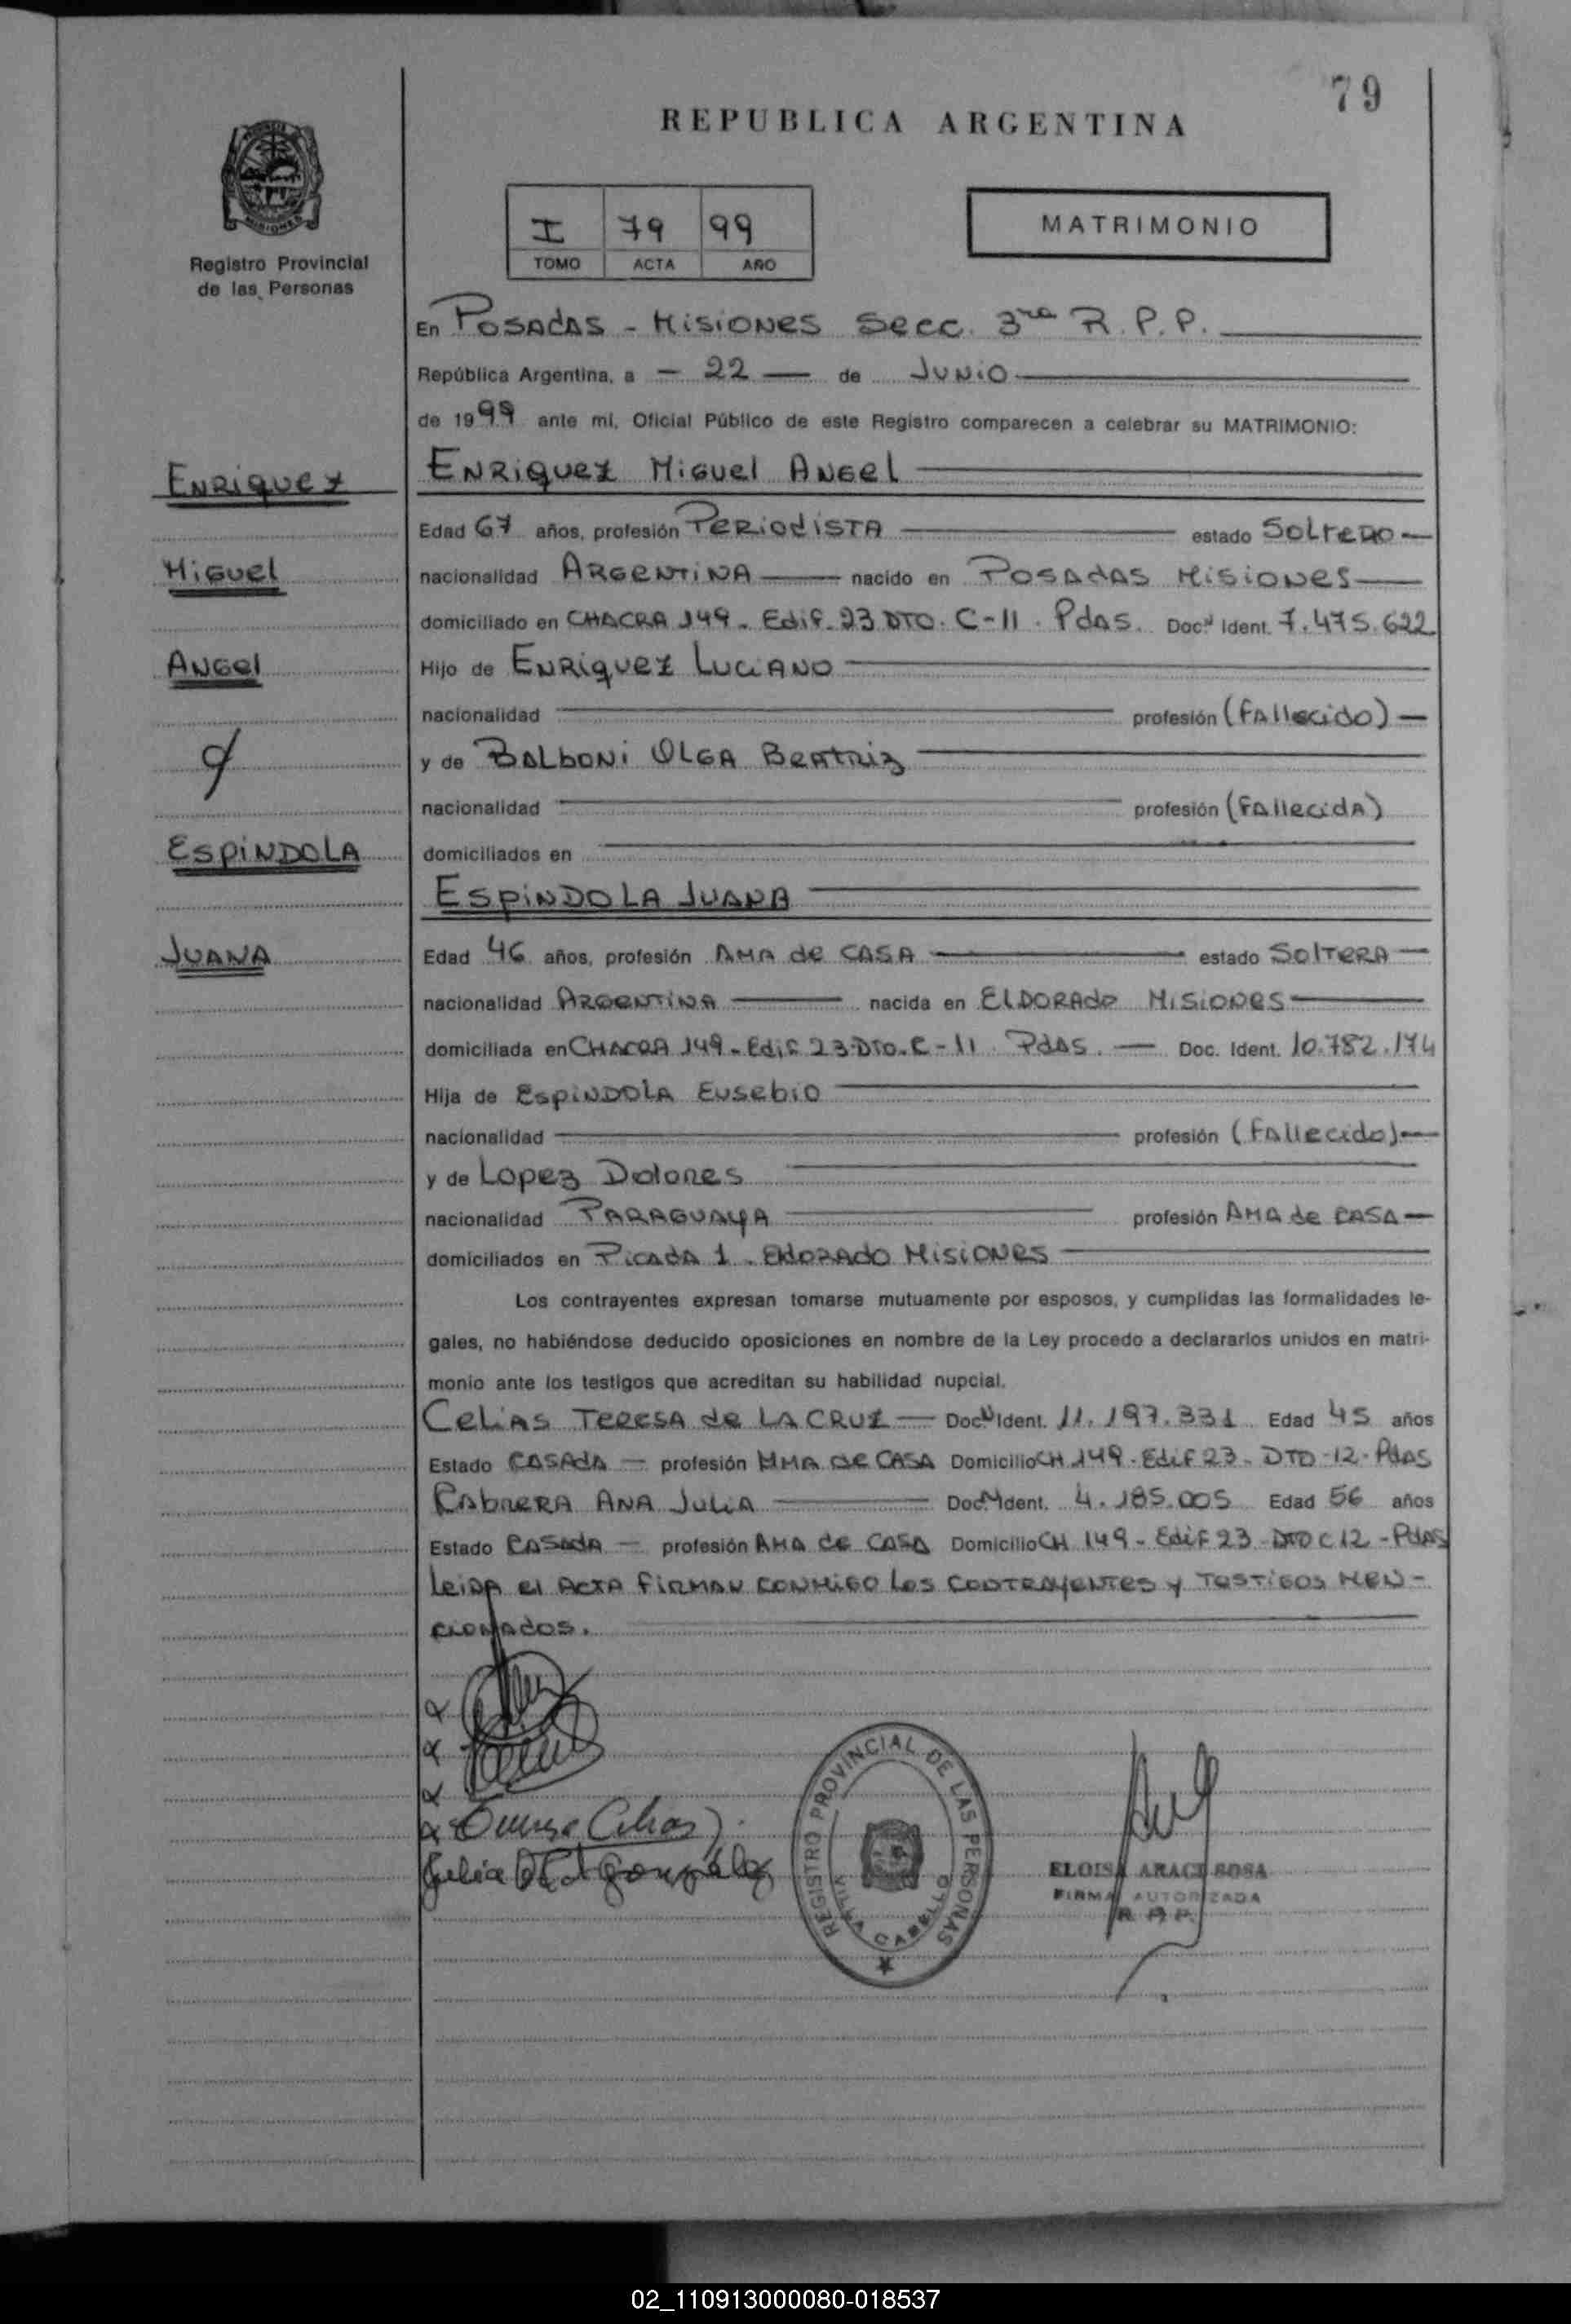 79
REPUBLICA ARGENTINA
Registro Provincial
de las Personas
I 79 99
TOMO ACTA AÑO
MATRIMONIO
En POSADAS - MISIONES Secc. 3ra R.P.P.
República Argentina, a - 22 — de JUNIO
de 1999 ante mí, Oficial Público de este Registro comparecen a celebrar su MATRIMONIO:
ENRIQUEZ
ENRIQUEZ MIGUEL ANGEL
Edad 67 años, profesión PERIODISTA estado SOLTERO
MIGUEL
nacionalidad ARGENTINA nacido en POSADAS MISIONES
domiciliado en CHACRA 149 - Edif. 23 DTO. C-11. Pdas. Doc. Ident. 7.475.622
ANGEL
Hijo de ENRIQUEZ LUCIANO
nacionalidad profesión (FALLECIDO)
y de BALBONI OLGA BEATRIZ
nacionalidad profesión (FALLECIDA)
ESPINDOLA
domiciliados en
ESPINDOLA JUANA
JUANA
Edad 46 años, profesión AMA de CASA estado SOLTERA
nacionalidad ARGENTINA nacida en ELDORADO MISIONES
domiciliada en CHACRA 149 - Edif 23 DTO. C-11 Pdas. Doc. Ident. 10.782.174
Hija de ESPINDOLA EUSEBIO
nacionalidad profesión (FALLECIDO)
y de LOPEZ DOLORES
nacionalidad PARAGUAYA profesión AMA de CASA
domiciliados en PICADA 1 - ELDORADO MISIONES
Los contrayentes expresan tomarse mutuamente por esposos, y cumplidas las formalidades le-
gales, no habiéndose deducido oposiciones en nombre de la Ley procedo a declararlos unidos en matri-
monio ante los testigos que acreditan su habilidad nupcial.
CELIAS TERESA de LA CRUZ — Doc. Ident. 11.197.331 Edad 45 años
Estado CASADA — profesión AMA de CASA Domicilio CH 149 - Edif 23 - DTO - 12 - Pdas
CABRERA ANA JULIA Doc. Ident. 4.185.005 Edad 56 años
Estado CASADA — profesión AMA de CASA Domicilio CH 149 - Edif 23 - DTO C 12 - Pdas
LEIDA el ACTA FIRMAN CONMIGO los CONTRAYENTES y TESTIGOS MEN-
CIONADOS.
REGISTRO PROVINCIAL DE LAS PERSONAS
VILLA CABELLO
ELOISA ARACI SOSA
FIRMA AUTORIZADA
R. P. P.
02_110913000080-018537